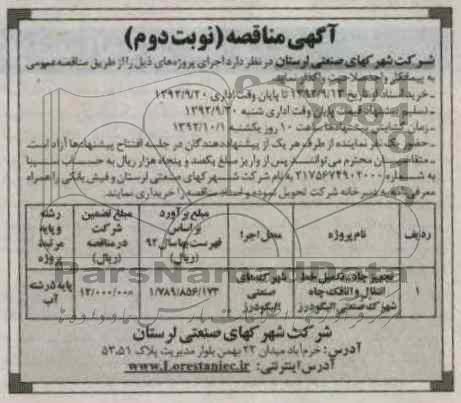 آگهی مناقصه (نوبت دوم)
شرکت شهرکهای صنعتی لرستان در نظر دارد اجرای پروژه‌های ذیل را از طریق مناقصه عمومی
به پیمانکار واجد صلاحیت واگذار نماید.
- خرید اسناد از تاریخ ۱۳۹۲/۹/۱۳ تا پایان وقت اداری ۱۳۹۲/۹/۲۰
- تسلیم پیشنهاد قیمت پایان وقت اداری شنبه ۱۳۹۲/۹/۳۰
- زمان گشایش پیشنهادها ساعت ۱۰ روز یکشنبه ۱۳۹۲/۱۰/۱
- حضور یک نفر نماینده از طرف هر یک از پیشنهاددهندگان در جلسه افتتاح پیشنهادها آزاد است.
- متقاضیان محترم می‌توانند پس از واریز مبلغ یکصد و پنجاه هزار ریال به حساب سیبا
به شماره ۲۱۷۵۶۷۴۹۰۲۰۰۰ به نام شرکت شهرکهای صنعتی لرستان و فیش بانکی را همراه
معرفی‌نامه به دبیرخانه شرکت تحویل نموده و اسناد مناقصه را خریداری نمایند.
ردیف | نام پروژه | محل اجرا | مبلغ برآورد براساس فهرست بها سال ۹۲ (ریال) | مبلغ تضمین شرکت در مناقصه (ریال) | رشته و پایه مرتبط پروژه
۱ | تجهیز چاه، تکمیل خط انتقال و اتاقک چاه شهرک صنعتی الیگودرز | شهرکهای صنعتی الیگودرز | ۱/۷۸۹/۸۵۶/۱۷۳ | ۱۲/۰۰۰/۰۰۰ | پایه ۵ رشته آب
شرکت شهرکهای صنعتی لرستان
آدرس: خرم‌آباد میدان ۲۲ بهمن بلوار مدیریت پلاک ۵۳،۵۱
آدرس اینترنتی: www.Lorestaniec.ir
ParsNamadData